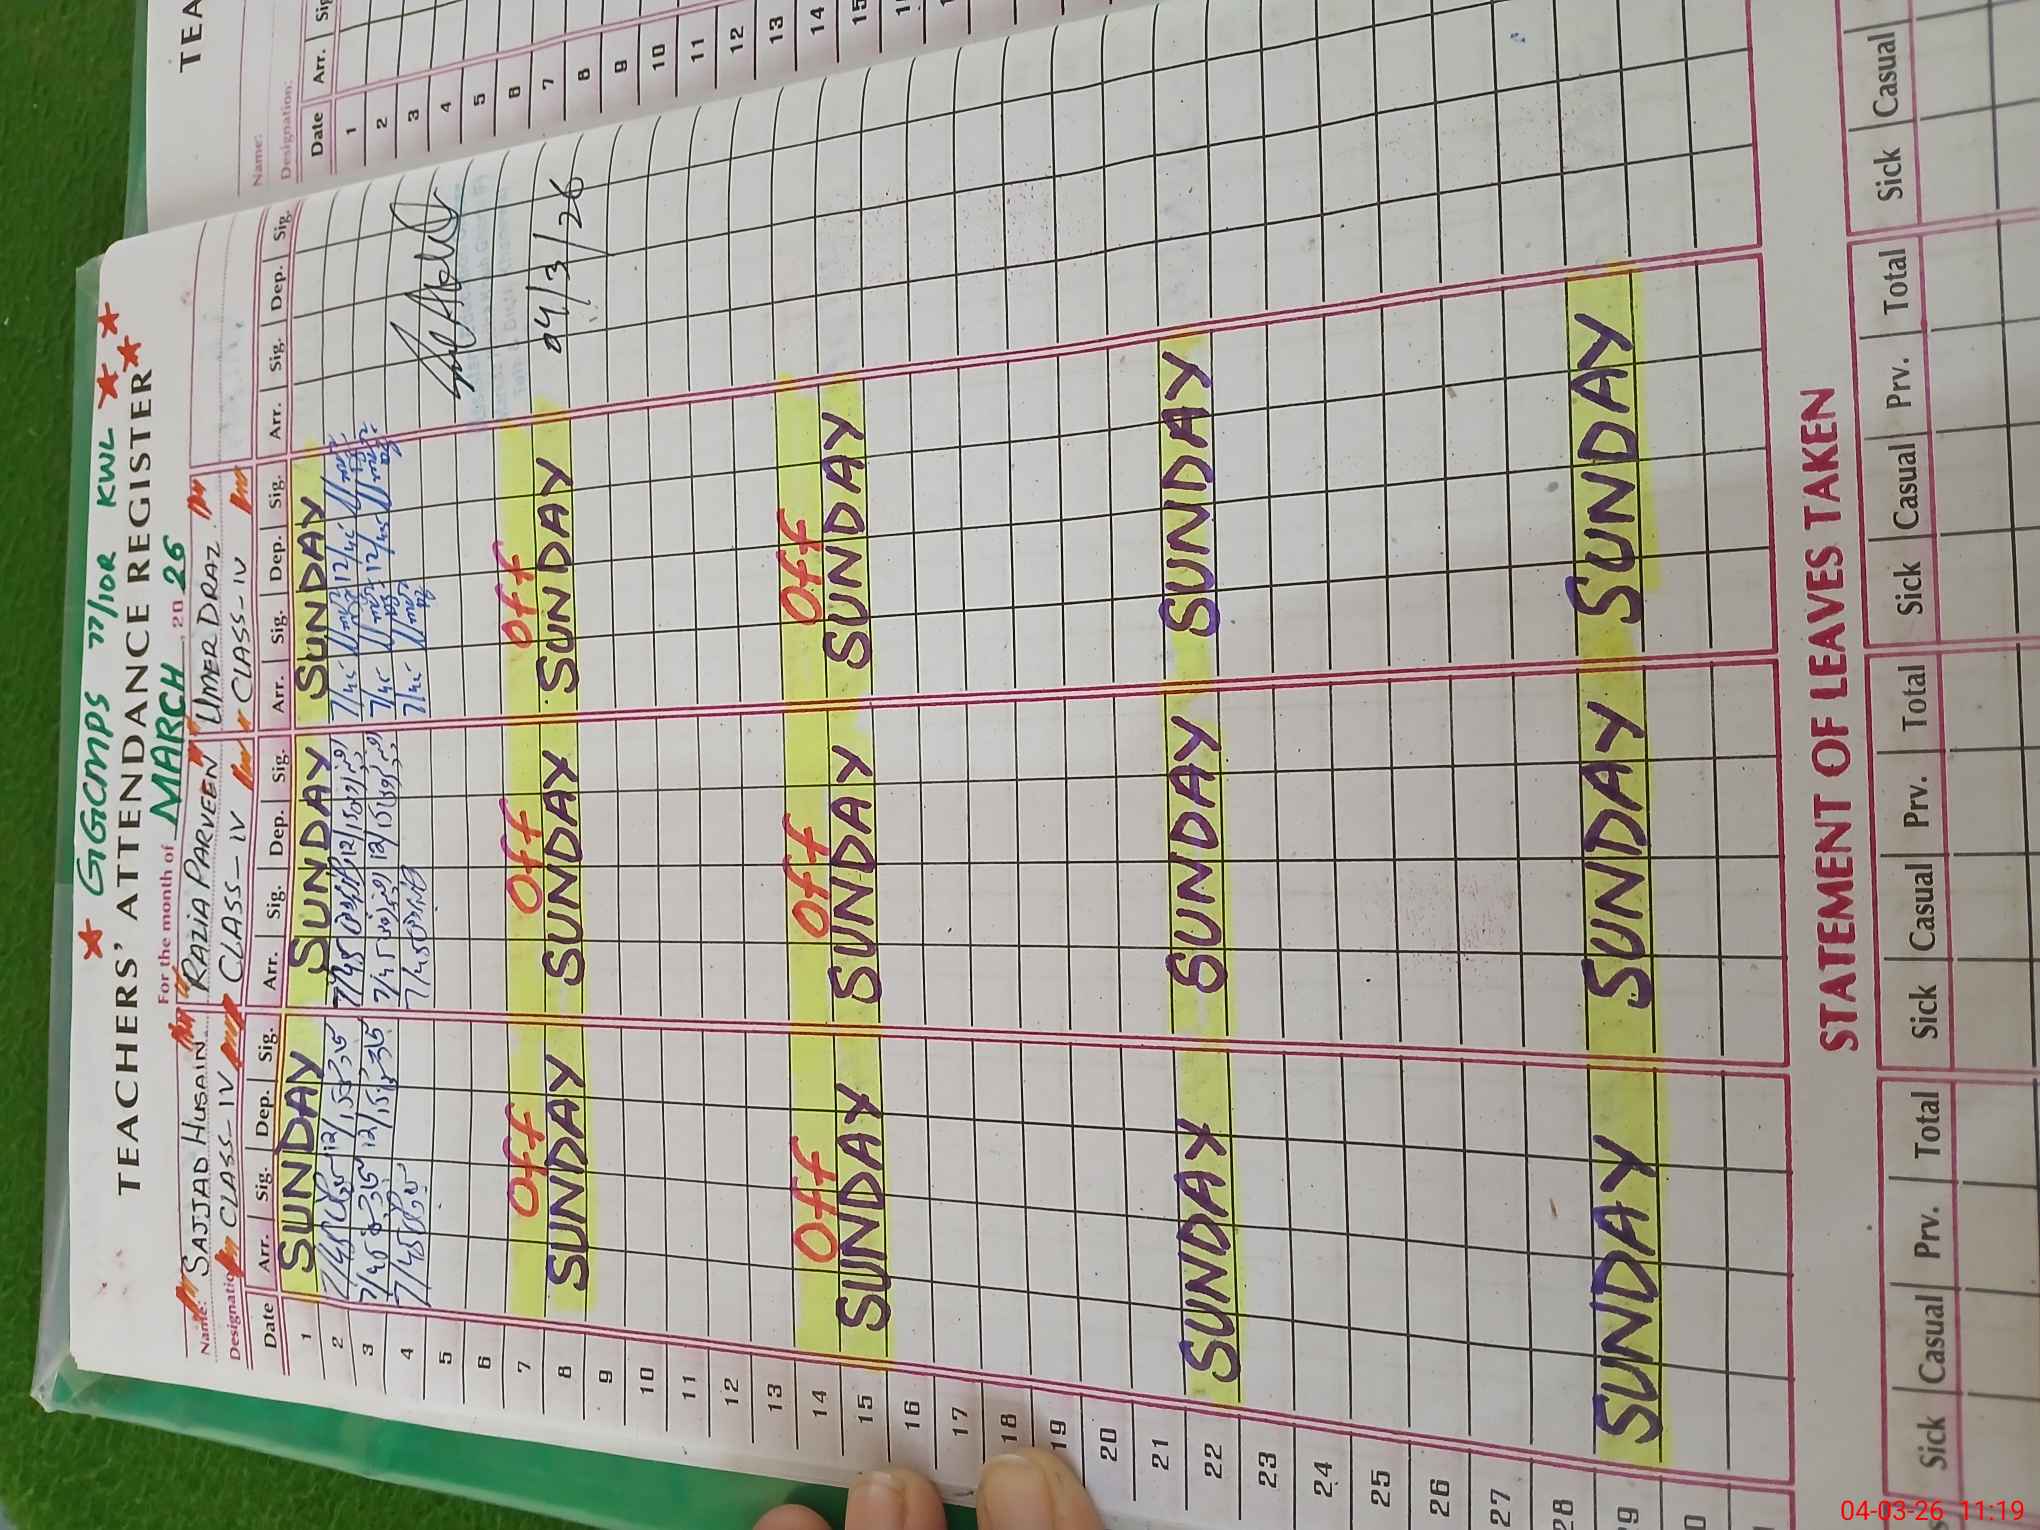 GGCMPS 77/10R KWL
TEACHERS' ATTENDANCE REGISTER
For the month of MARCH, 2026
Name: SAJJAD HUSAIN RAZIA PARVEEN UMER DRAZ
Designation CLASS-IV CLASS-IV CLASS-IV
Date Arr. Sig. Dep. Sig. Arr. Sig. Dep. Sig. Arr. Sig. Dep. Sig. Arr. Sig. Dep. Sig.
1 SUNDAY SUNDAY SUNDAY
2 7/45 12/15 7/45 12/15
3 7/45 12/15 7/45 12/15 12/45
4 7/45 7/45
5
6
7 Off Off Off
04/3/26
8 SUNDAY SUNDAY SUNDAY
9
10
11
12
13
14 Off Off Off
15 SUNDAY SUNDAY SUNDAY
16
17
18
19
20
21
22 SUNDAY SUNDAY SUNDAY
23
24
25
26
27
28
29 SUNDAY SUNDAY SUNDAY
STATEMENT OF LEAVES TAKEN
Sick Casual Prv. Total Sick Casual Prv. Total Sick Casual Prv. Total Sick Casual
TEA
Name:
Designation:
Date Arr.
1
2
3
4
5
6
7
8
9
10
11
12
13
14
15
04-03-26 11:19